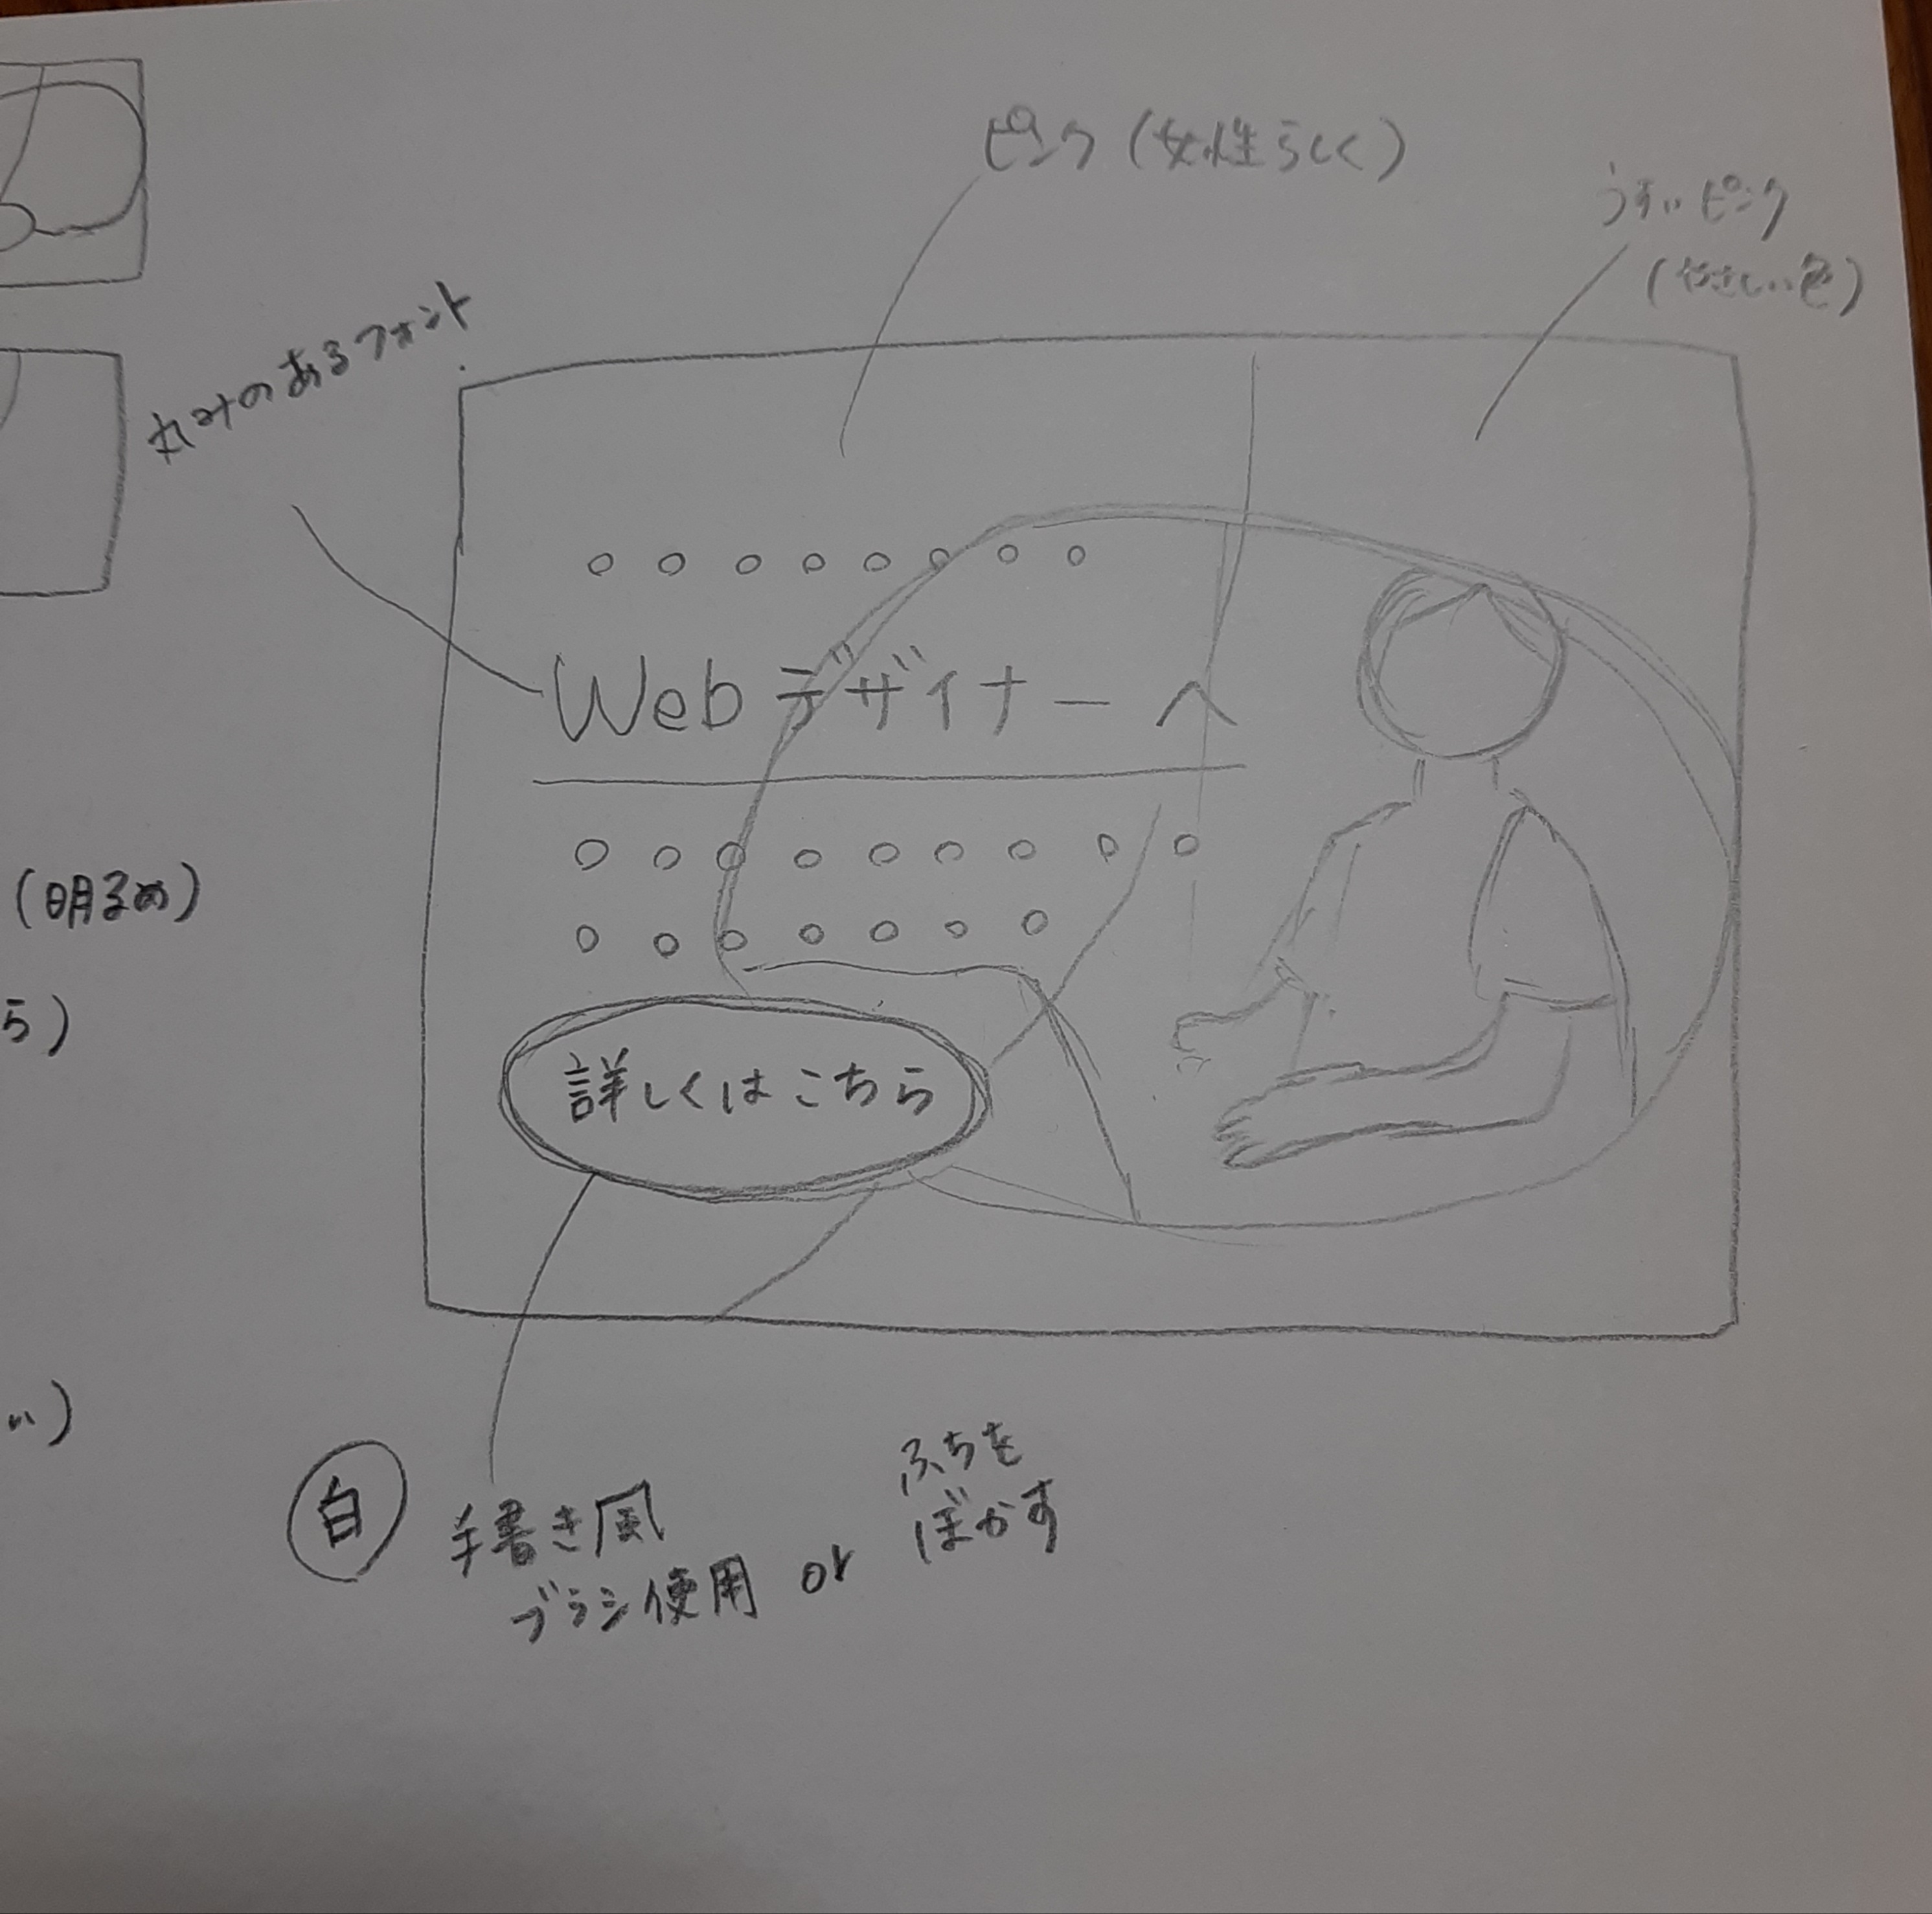 ピンク(女性らしく)
うすいピンク
(やさしい色)
丸みのあるフォント
○○○○○○○○
Webデザイナーへ
○○○○○○○○○
○○○○○○○
詳しくはこちら
(明るめ)
ら)
い)
白
手書き風
ブラシ使用 or
ふちを
ぼかす